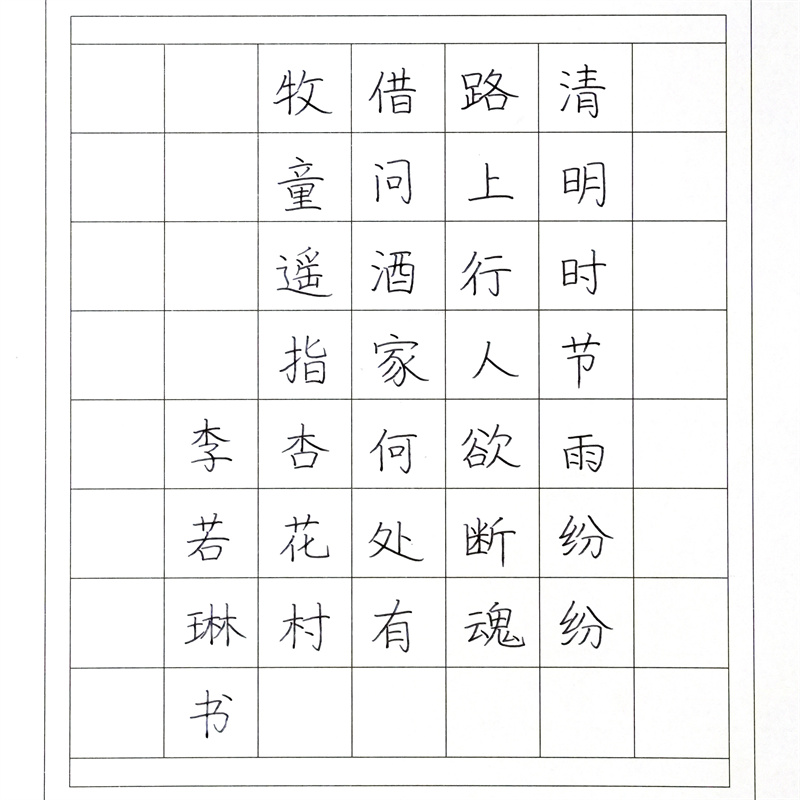 清明时节雨纷纷
路上行人欲断魂
借问酒家何处有
牧童遥指杏花村
李若琳书